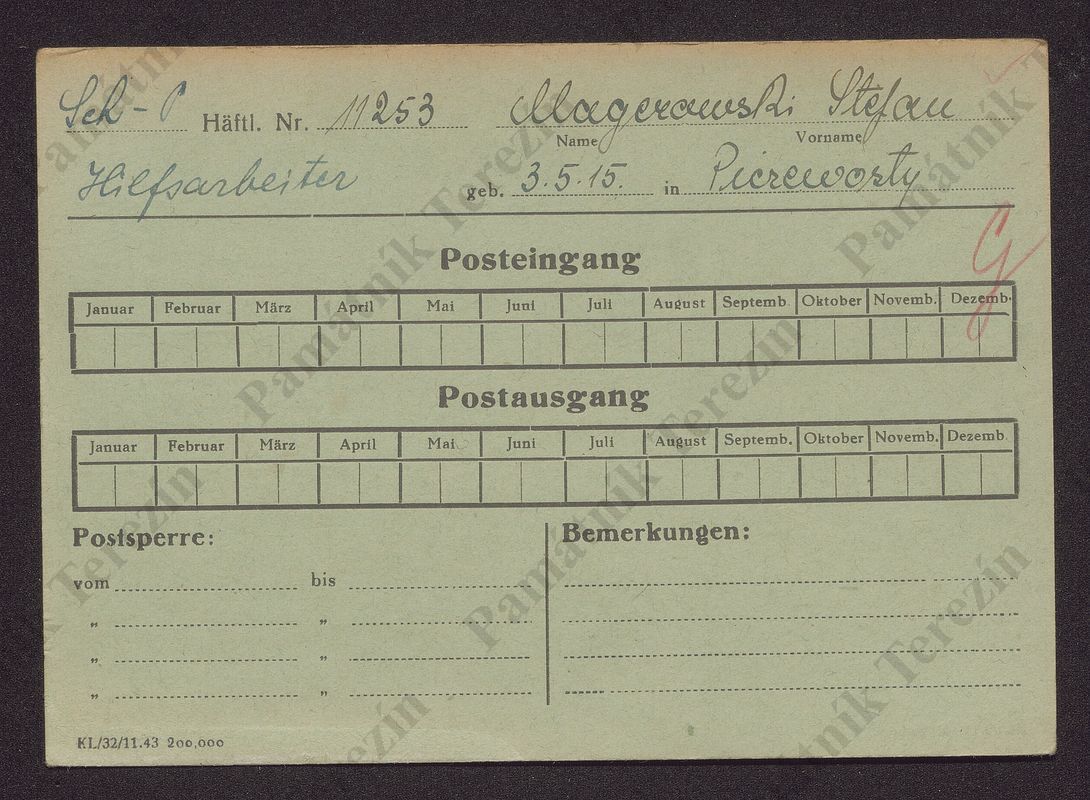 Sch-P Häftl. Nr. 11253 Magerowski Stefan
Name Vorname
Hilfsarbeiter geb. 3.5.15. in Pierewosty
Posteingang
Januar Februar März April Mai Juni Juli August Septemb Oktober Novemb. Dezemb.
Postausgang
Januar Februar März April Mai Juni Juli August Septemb. Oktober Novemb. Dezemb
Postsperre: Bemerkungen:
vom bis
„ „
„ „
„ „
KL/32/11.43 200,000
Památník Terezín